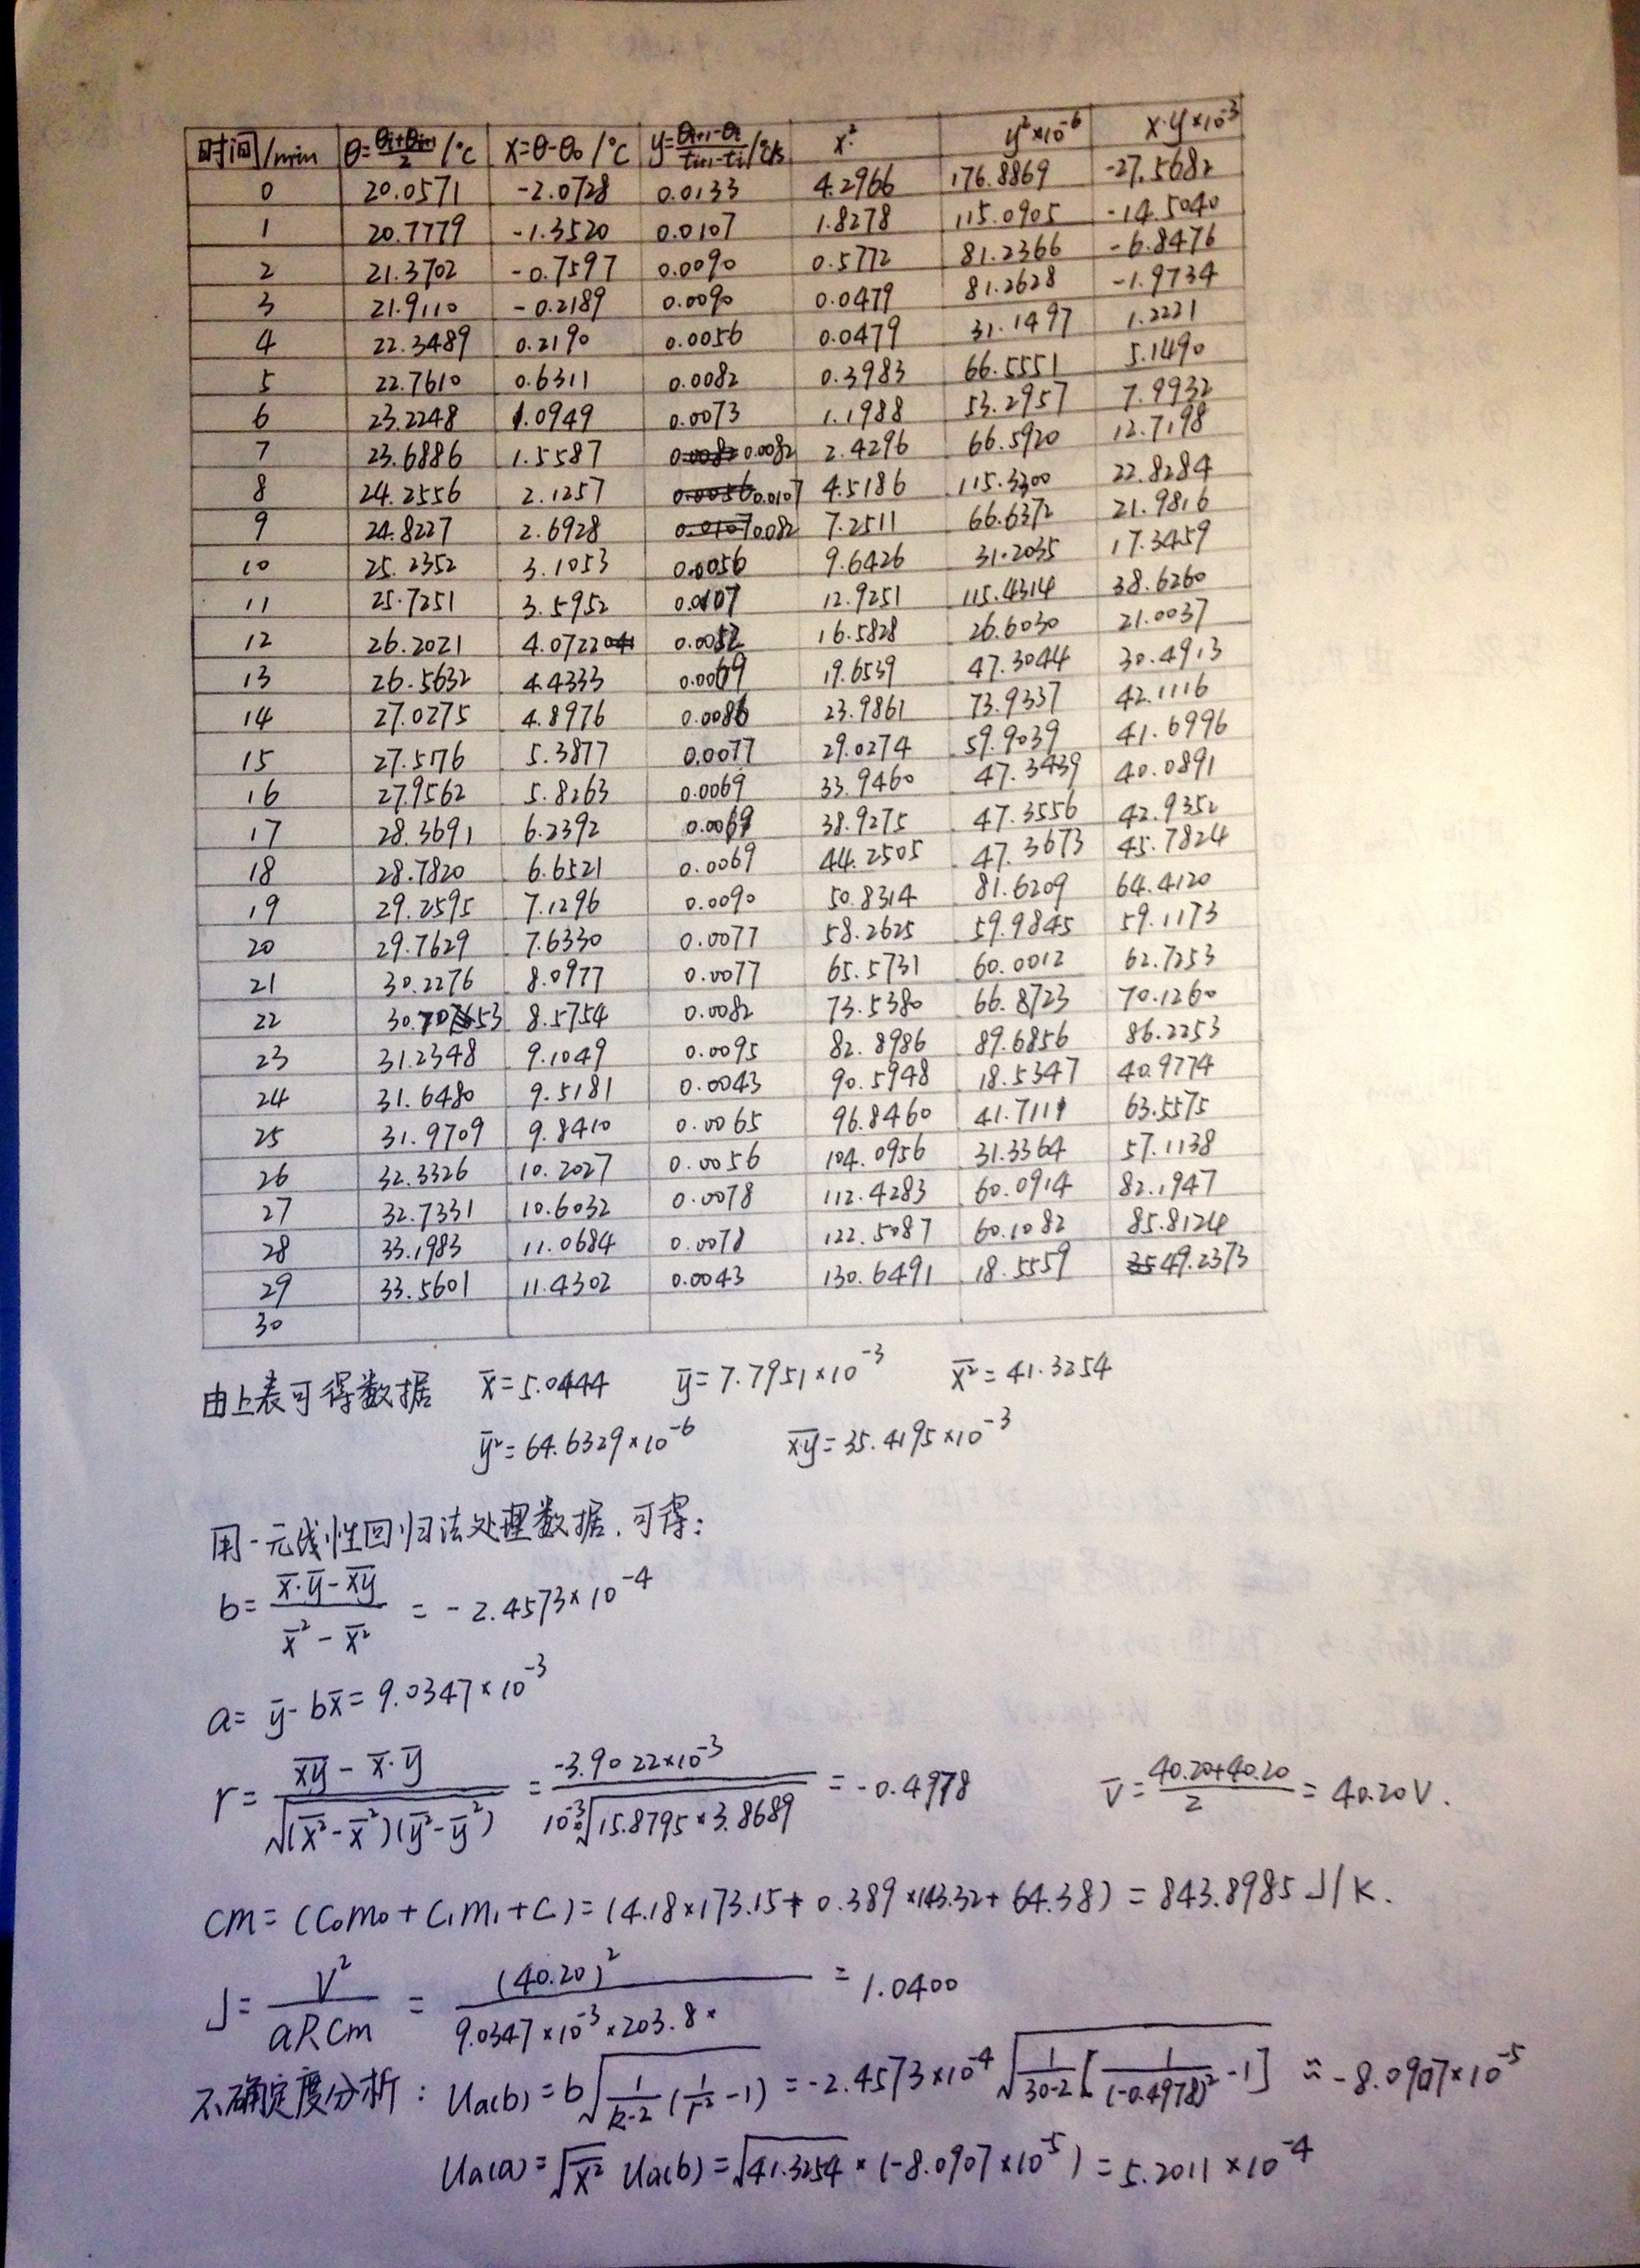 时间/min θ=(θi+θi+1)/2 /℃ x=θ-θ₀ /℃ y=(θi+1-θi)/(ti+1-ti) /℃/s x² y²×10⁻⁶ x·y×10⁻³
0 20.0571 -2.0728 0.0133 4.2966 176.8869 -27.5682
1 20.7779 -1.3520 0.0107 1.8278 115.0905 -14.5040
2 21.3702 -0.7597 0.0090 0.5772 81.2366 -6.8476
3 21.9110 -0.2189 0.0090 0.0479 81.2628 -1.9734
4 22.3489 0.2190 0.0056 0.0479 31.1497 1.2221
5 22.7610 0.6311 0.0082 0.3983 66.5551 5.1490
6 23.2248 1.0949 0.0073 1.1988 53.2957 7.9932
7 23.6886 1.5587 0.0082 2.4296 66.5920 12.7198
8 24.2556 2.1257 0.0107 4.5186 115.3300 22.8284
9 24.8227 2.6928 0.0082 7.2511 66.6372 21.9816
10 25.2352 3.1053 0.0056 9.6426 31.2035 17.3459
11 25.7251 3.5952 0.0107 12.9251 115.4314 38.6260
12 26.2021 4.0722 0.0052 16.5828 26.6030 21.0037
13 26.5632 4.4333 0.0069 19.6539 47.3044 30.4913
14 27.0275 4.8976 0.0086 23.9861 73.9337 42.1116
15 27.5176 5.3877 0.0077 29.0274 59.9039 41.6996
16 27.9562 5.8263 0.0069 33.9460 47.3439 40.0891
17 28.3691 6.2392 0.0069 38.9275 47.3556 42.9352
18 28.7820 6.6521 0.0069 44.2505 47.3673 45.7824
19 29.2595 7.1296 0.0090 50.8314 81.6209 64.4120
20 29.7629 7.6330 0.0077 58.2625 59.9845 59.1173
21 30.2276 8.0977 0.0077 65.5731 60.0012 62.7253
22 30.7053 8.5754 0.0082 73.5380 66.8723 70.1260
23 31.2348 9.1049 0.0095 82.8986 89.6856 86.2253
24 31.6480 9.5181 0.0043 90.5948 18.5347 40.9774
25 31.9709 9.8410 0.0065 96.8460 41.7111 63.5575
26 32.3326 10.2027 0.0056 104.0956 31.3364 57.1138
27 32.7331 10.6032 0.0078 112.4283 60.0914 82.1947
28 33.1983 11.0684 0.0078 122.5087 60.1082 85.8124
29 33.5601 11.4302 0.0043 130.6491 18.5559 49.2373
30
由上表可得数据 x̄=5.0444 ȳ=7.7951×10⁻³ x̄²=41.3254
ȳ²=64.6329×10⁻⁶ x̄ȳ=35.4195×10⁻³
用一元线性回归法处理数据,可得:
b=(x̄·ȳ-x̄ȳ)/(x̄²-x̄²) = -2.4573×10⁻⁴
a=ȳ-bx̄=9.0347×10⁻³
r=(x̄ȳ-x̄·ȳ)/√((x̄²-x̄²)(ȳ²-ȳ²)) = (-3.9022×10⁻³)/(10⁻³√(15.8795×3.8689)) = -0.4978 V̄=(40.20+40.20)/2=40.20V.
Cm=(C₀m₀+C₁m₁+C)=(4.18×173.15+0.389×143.32+64.38)=843.8985J/K.
J=V²/(aRCm)=(40.20)²/(9.0347×10⁻³×203.8×)=1.0400
不确定度分析: Ua(b)=b√(1/(k-2)(1/r²-1))=-2.4573×10⁻⁴√(1/(30-2)[1/(-0.4978)²-1])≈-8.0907×10⁻⁵
Ua(a)=√x̄² Ua(b)=√41.3254×(-8.0907×10⁻⁵)=5.2011×10⁻⁴